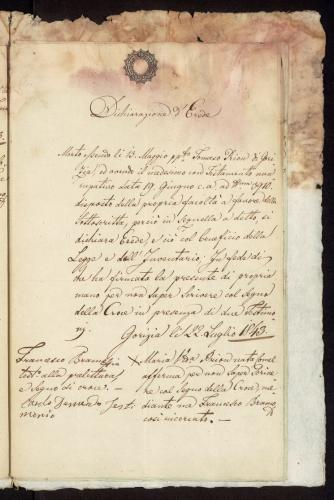 Dichiarazione d'Erede
Morto essendo li 13. Maggio ppto Tomaso Brion di Gori-
zia, ed avendo il medesimo con Testamento nun-
cupativo data 19. Giugno c. a. ad 3910.
disposto della propria facoltà a favore della
sottoscritta, perciò in sequella a detto, si
dichiara Erede, e ciò col beneficio della
Legge e dell'Inventario; In fede di
che ha firmato la presente di propria
mano per non saper scrivere col segno
della Croce in presenza di due Testimo-
nj.
Gorizia li 22. Luglio 1843.
Francesco Bram
test° alla
e segno di croce. —
Testi-
monio
+ Maria Brion nata
afferma per non saper scrive-
re col segno della Croce, me-
diante me Francesco Bram
così ricercato. —